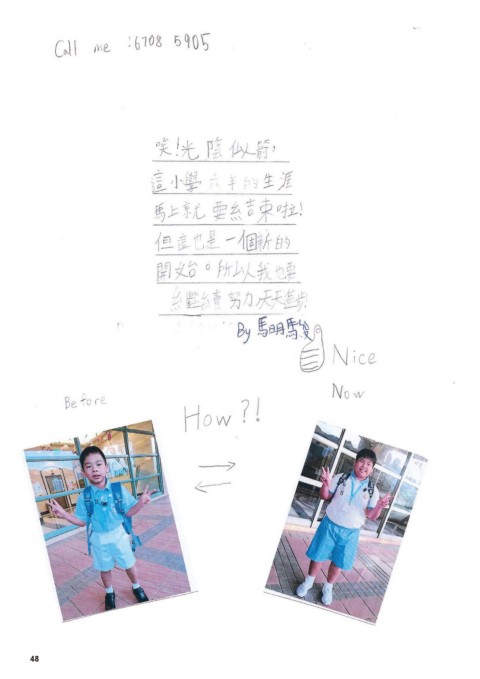 Call me :6708 5905
唉!光陰似箭,
這小學六年的生涯
馬上就要結束啦!
但這也是一個新的
開始。所以我也要
繼續努力天天進步!
By 馬明駿
Nice
Before
Now
How?!
48